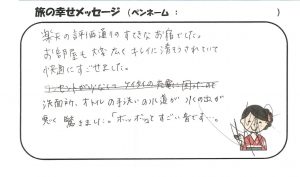 旅の幸せメッセージ （ペンネーム ： ）
楽天の評価通りのすてきなお宿でした。
お部屋も大変広くキレイに清そうされていて
快適にすごせました。
コンセントが少なくて ケイタイの充電に困ったので
洗面所、オトイレの手洗いの水道が 水の出が
悪く 驚きました。「ボッボッ」とすごい音です…。